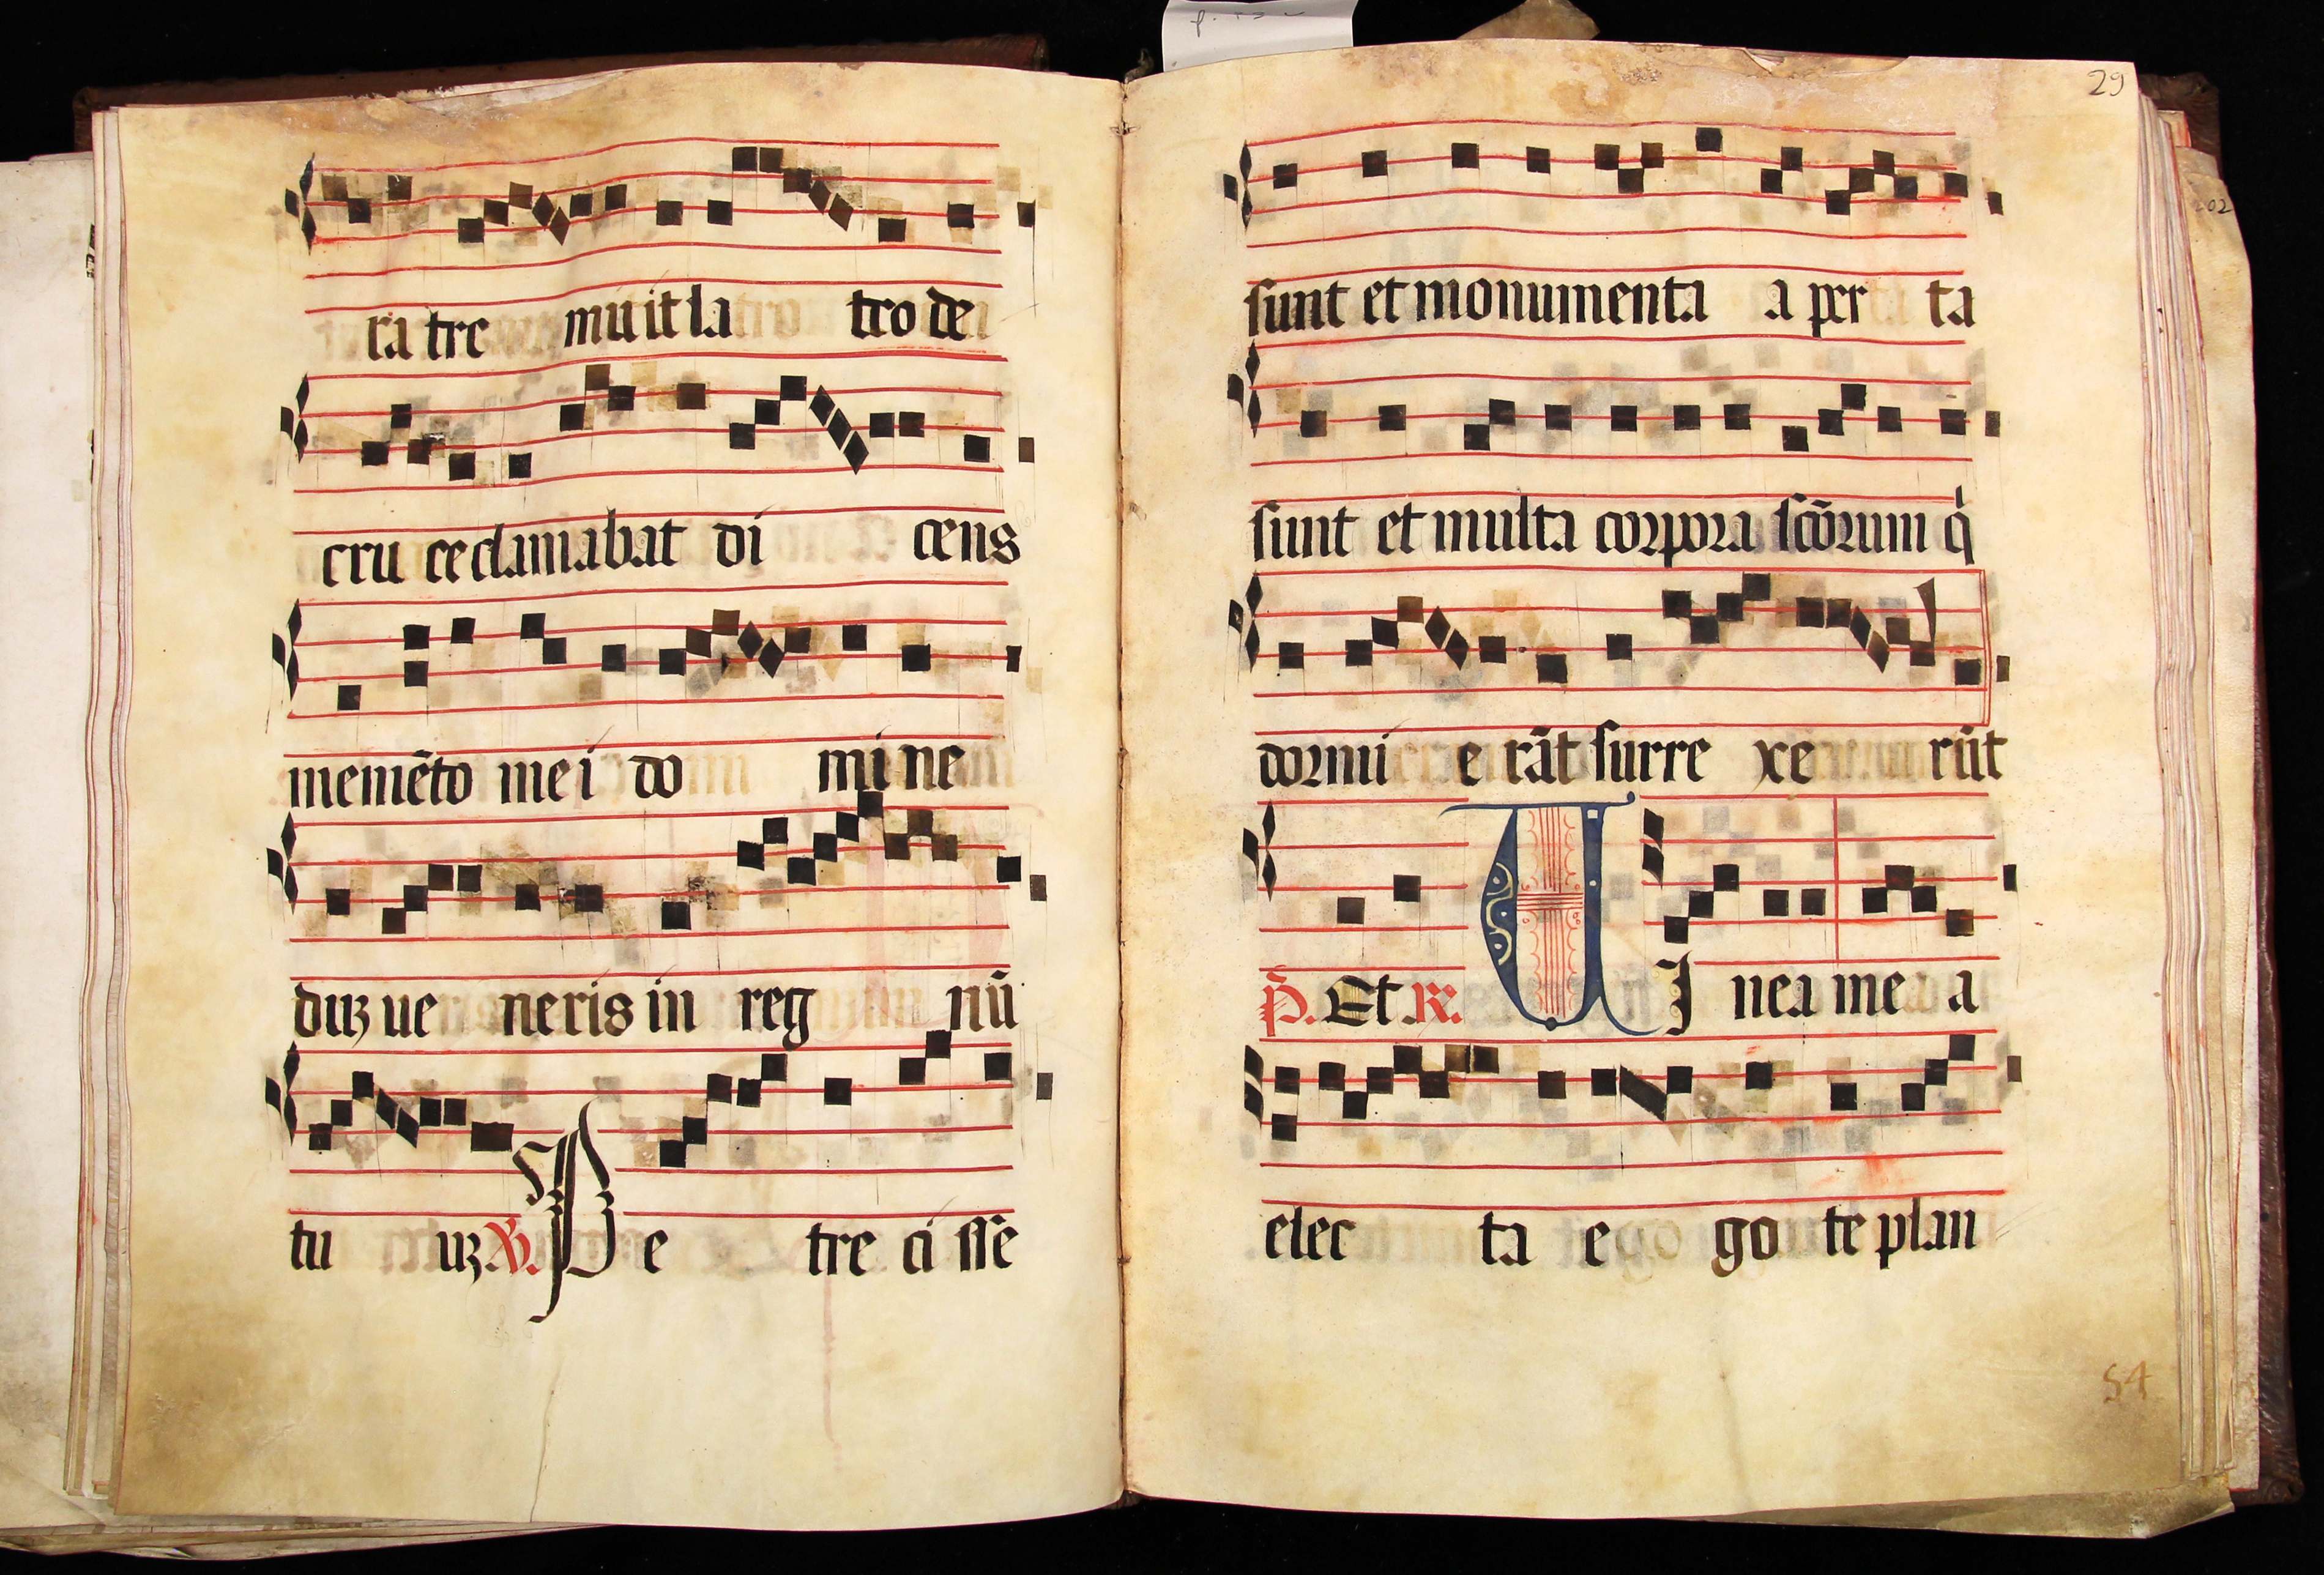 ra tre muit la tro de
cru ce clamabat di cens
memēto me i do mi ne
duꝫ ue neris in reg nū
tu uꝫ ℣. Pe tre ci sse
29
sunt et monumenta a per ta
sunt et multa corpora scōrum q̇
dormi e rāt surre xe rūt
P̄. Et ℟. UI nea mea
elec ta e go te plan
54